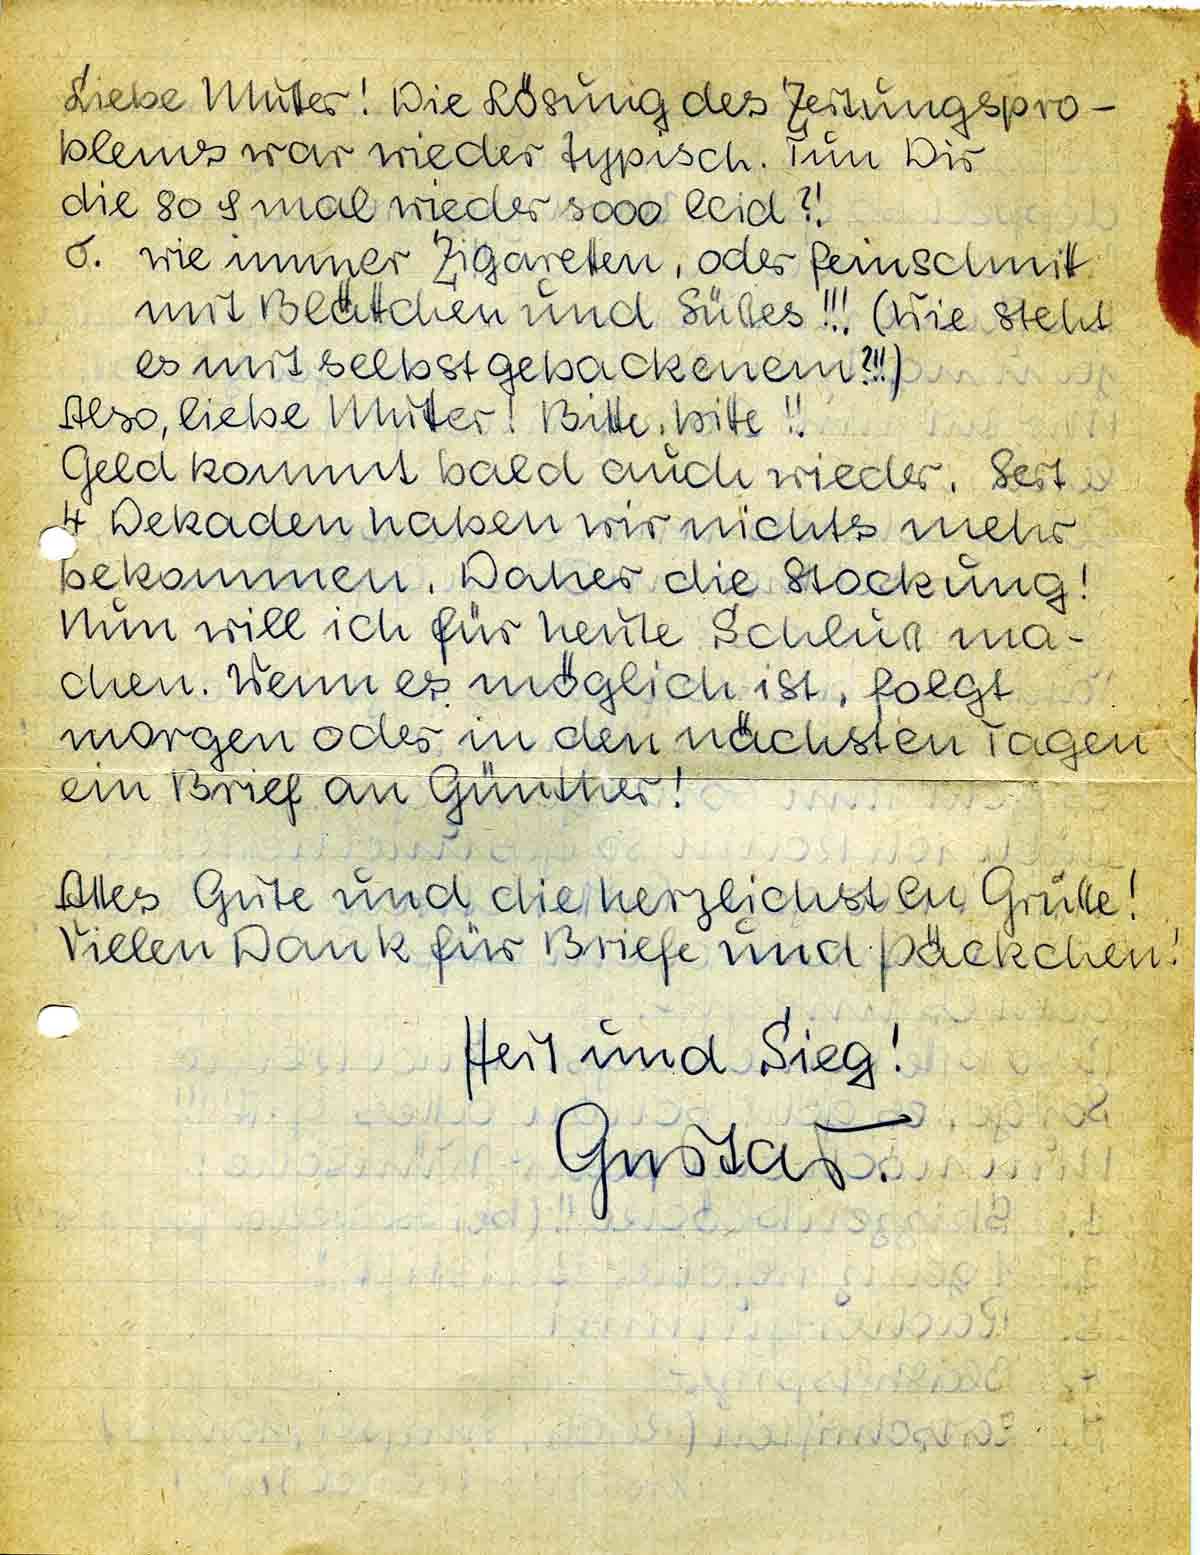 Liebe Mutter! Die Lösung des Zeitungspro-
blems war wieder typisch. Tun Dir
die 80 ₰ mal wieder sooo leid?!
6. wie immer Zigaretten, oder Feinschnitt
mit Blättchen und Süßes!!! (Wie steht
es mit selbstgebackenem?!!!)
Also, liebe Mutter! Bitte, bitte!!
Geld kommt bald auch wieder. Seit
4 Dekaden haben wir nichts mehr
bekommen. Daher die Stockung!
Nun will ich für heute Schluß ma-
chen. Wenn es möglich ist, folgt
morgen oder in den nächsten Tagen
ein Brief an Günther!
Alles Gute und die herzlichsten Grüße!
Vielen Dank für Briefe und Päckchen!
Heil und Sieg!
Gustav.